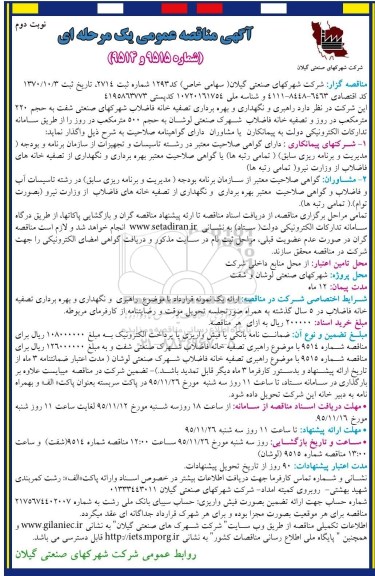 نوبت دوم
آگهی مناقصه عمومی یک مرحله ای
(شماره ۹۵۱۵ و ۹۵۱۴)
شرکت شهرکهای صنعتی گیلان
مناقصه گزار: شرکت شهرکهای صنعتی گیلان( سهامی خاص) کد۱۲۹۳ شماره ثبت ۲۷۱۴، تاریخ ثبت ۱۳۷۰/۱۰/۳
کد اقتصادی ۶۴۶۳-۸۴۴۸-۴۱۱۱ و شناسه ملی ۱۰۷۲۰۱۶۱۷۵۴ کدپستی ۴۱۹۵۸۶۳۷۷۳
این شرکت در نظر دارد راهبری و نگهداری و بهره برداری تصفیه خانه فاضلاب شهرکهای صنعتی شفت به حجم ۲۲۰
مترمکعب در روز و تصفیه خانه فاضلاب شهرک صنعتی لوشان به حجم ۵۰۰ مترمکعب در روز را از طریق سامانه
تدارکات الکترونیکی دولت به پیمانکاران یا مشاوران دارای گواهینامه صلاحیت به شرح ذیل واگذار نماید:
۱- شرکتهای پیمانکاری : دارای گواهی صلاحیت معتبر در رشته تاسیسات و تجهیزات از سازمان برنامه و بودجه (
مدیریت و برنامه ریزی سابق) ( تمامی رتبه ها) یا گواهی صلاحیت معتبر بهره برداری و نگهداری از تصفیه خانه های
فاضلاب از وزارت نیرو( تمامی رتبه ها)
۲- مشاوران: گواهی صلاحیت معتبر از سازمان برنامه بودجه ( مدیریت و برنامه ریزی سابق) در رشته تاسیسات آب
و فاضلاب و گواهی صلاحیت معتبر بهره برداری و نگهداری از تصفیه خانه های فاضلاب از وزارت نیرو (بصورت
توام).( تمامی رتبه ها)
تمامی مراحل برگزاری مناقصه، از دریافت اسناد مناقصه تا ارئه پیشنهاد مناقصه گران و بازگشایی پاکاتها، از طریق درگاه
سامانه تدارکات الکترونیکی دولت( ستاد) به نشانی www.setadiran.ir انجام خواهد شد و لازم است مناقصه
گران در صورت عدم عضویت قبلی، مراحل ثبت نام در سایت مذکور و دریافت گواهی امضای الکترونیکی را جهت
شرکت در مناقصه محقق سازند.
محل تامین اعتبار: از محل منابع داخلی شرکت
محل پروژه: شهرکهای صنعتی لوشان و شفت
مدت پیمان: ۱۲ ماه
شرایط اختصاصی شرکت در مناقصه: ارائه یک نمونه قرارداد با موضوع راهبری و نگهداری و بهره برداری تصفیه
خانه فاضلاب در ۵ سال گذشته به همراه صورتجلسه تحویل موقت و رضایتنامه از کارفرمای مربوطه.
مبلغ خرید اسناد: ۲۰۰۰۰۰ ریال به ازای هر مناقصه.
مبلغ تضمین و نوع آن: ضمانت نامه بانکی یا فیش واریزی یا پرداخت الکترونیک به مبلغ ۱۰۸۰۰۰۰۰۰ ریال برای
مناقصه شماره ۹۵۱۴ با موضوع راهبری تصفیه خانه فاضلاب شهرک صنعتی شفت و به مبلغ ۱۲۶۰۰۰۰۰۰ ریال برای
مناقصه شماره ۹۵۱۵ با موضوع راهبری تصفیه خانه فاضلاب شهرک صنعتی لوشان ( مدت اعتبار ضمانتنامه ۳ ماه از
تاریخ ارائه پیشنهاد و بدستور کارفرما ۳ ماه دیگر قابل تمدید باشد.)– تضمین شرکت در مناقصه میبایست علاوه بر
بارگذاری در سامانه ستاد، تا ساعت ۱۱ روز سه شنبه مورخ ۹۵/۱۱/۲۶ در پاکت سربسته بعنوان پاکت« الف و بهمراه
نامه به دبیر خانه این شرکت تحویل داده شود.
• مهلت دریافت اسناد مناقصه از سامانه: از ساعت ۱۸ روز سه شنبه مورخ ۹۵/۱۱/۱۲ لغایت ساعت ۱۱ روز شنبه
مورخ ۹۵/۱۱/۱۶.
• مهلت ارائه پیشنهاد: تا ساعت ۱۱ روز سه شنبه مورخ ۹۵/۱۱/۲۶
• ساعت و تاریخ بازگشایی: روز سه شنبه مورخ ۹۵/۱۱/۲۶ ساعت ۱۲:۰۰ مناقصه شماره ۹۵۱۴(شفت) و ساعت
۱۳:۰۰ مناقصه شماره ۹۵۱۵ (لوشان)
مدت اعتبار پیشنهادات: ۹۰ روز از تاریخ تحویل پیشنهادات.
نشانی و شماره تماس کارفرما جهت دریافت اطلاعات بیشتر در خصوص اسناد وارائه پاکت«الف»: رشت کمربندی
شهید بهشتی- روبروی کمیته امداد- شرکت شهرکهای صنعتی گیلان ۰۱۳۳۳۴۴۳۰۱۱
شماره حساب جهت ارائه تضمین بصورت فیش واریزی: حساب سیبای بانک ملی رشت به شماره ۲۱۷۵۶۷۴۴۰۲۰۰۷
مناقصه برای هر موقعیت بصورت مجزا بوده و برای هر شهرک قرارداد جداگانه ای عقد میگردد.
اطلاعات تکمیلی مناقصه از طریق وب سایت" شرکت شهرک های صنعتی گیلان" به نشانی www.gilaniec.ir و
همچنین " پایگاه ملی اطلاع رسانی مناقصات کشور" به نشانی http://iets.mporg.ir قابل دسترسی می باشد.
روابط عمومی شرکت شهرکهای صنعتی گیلان